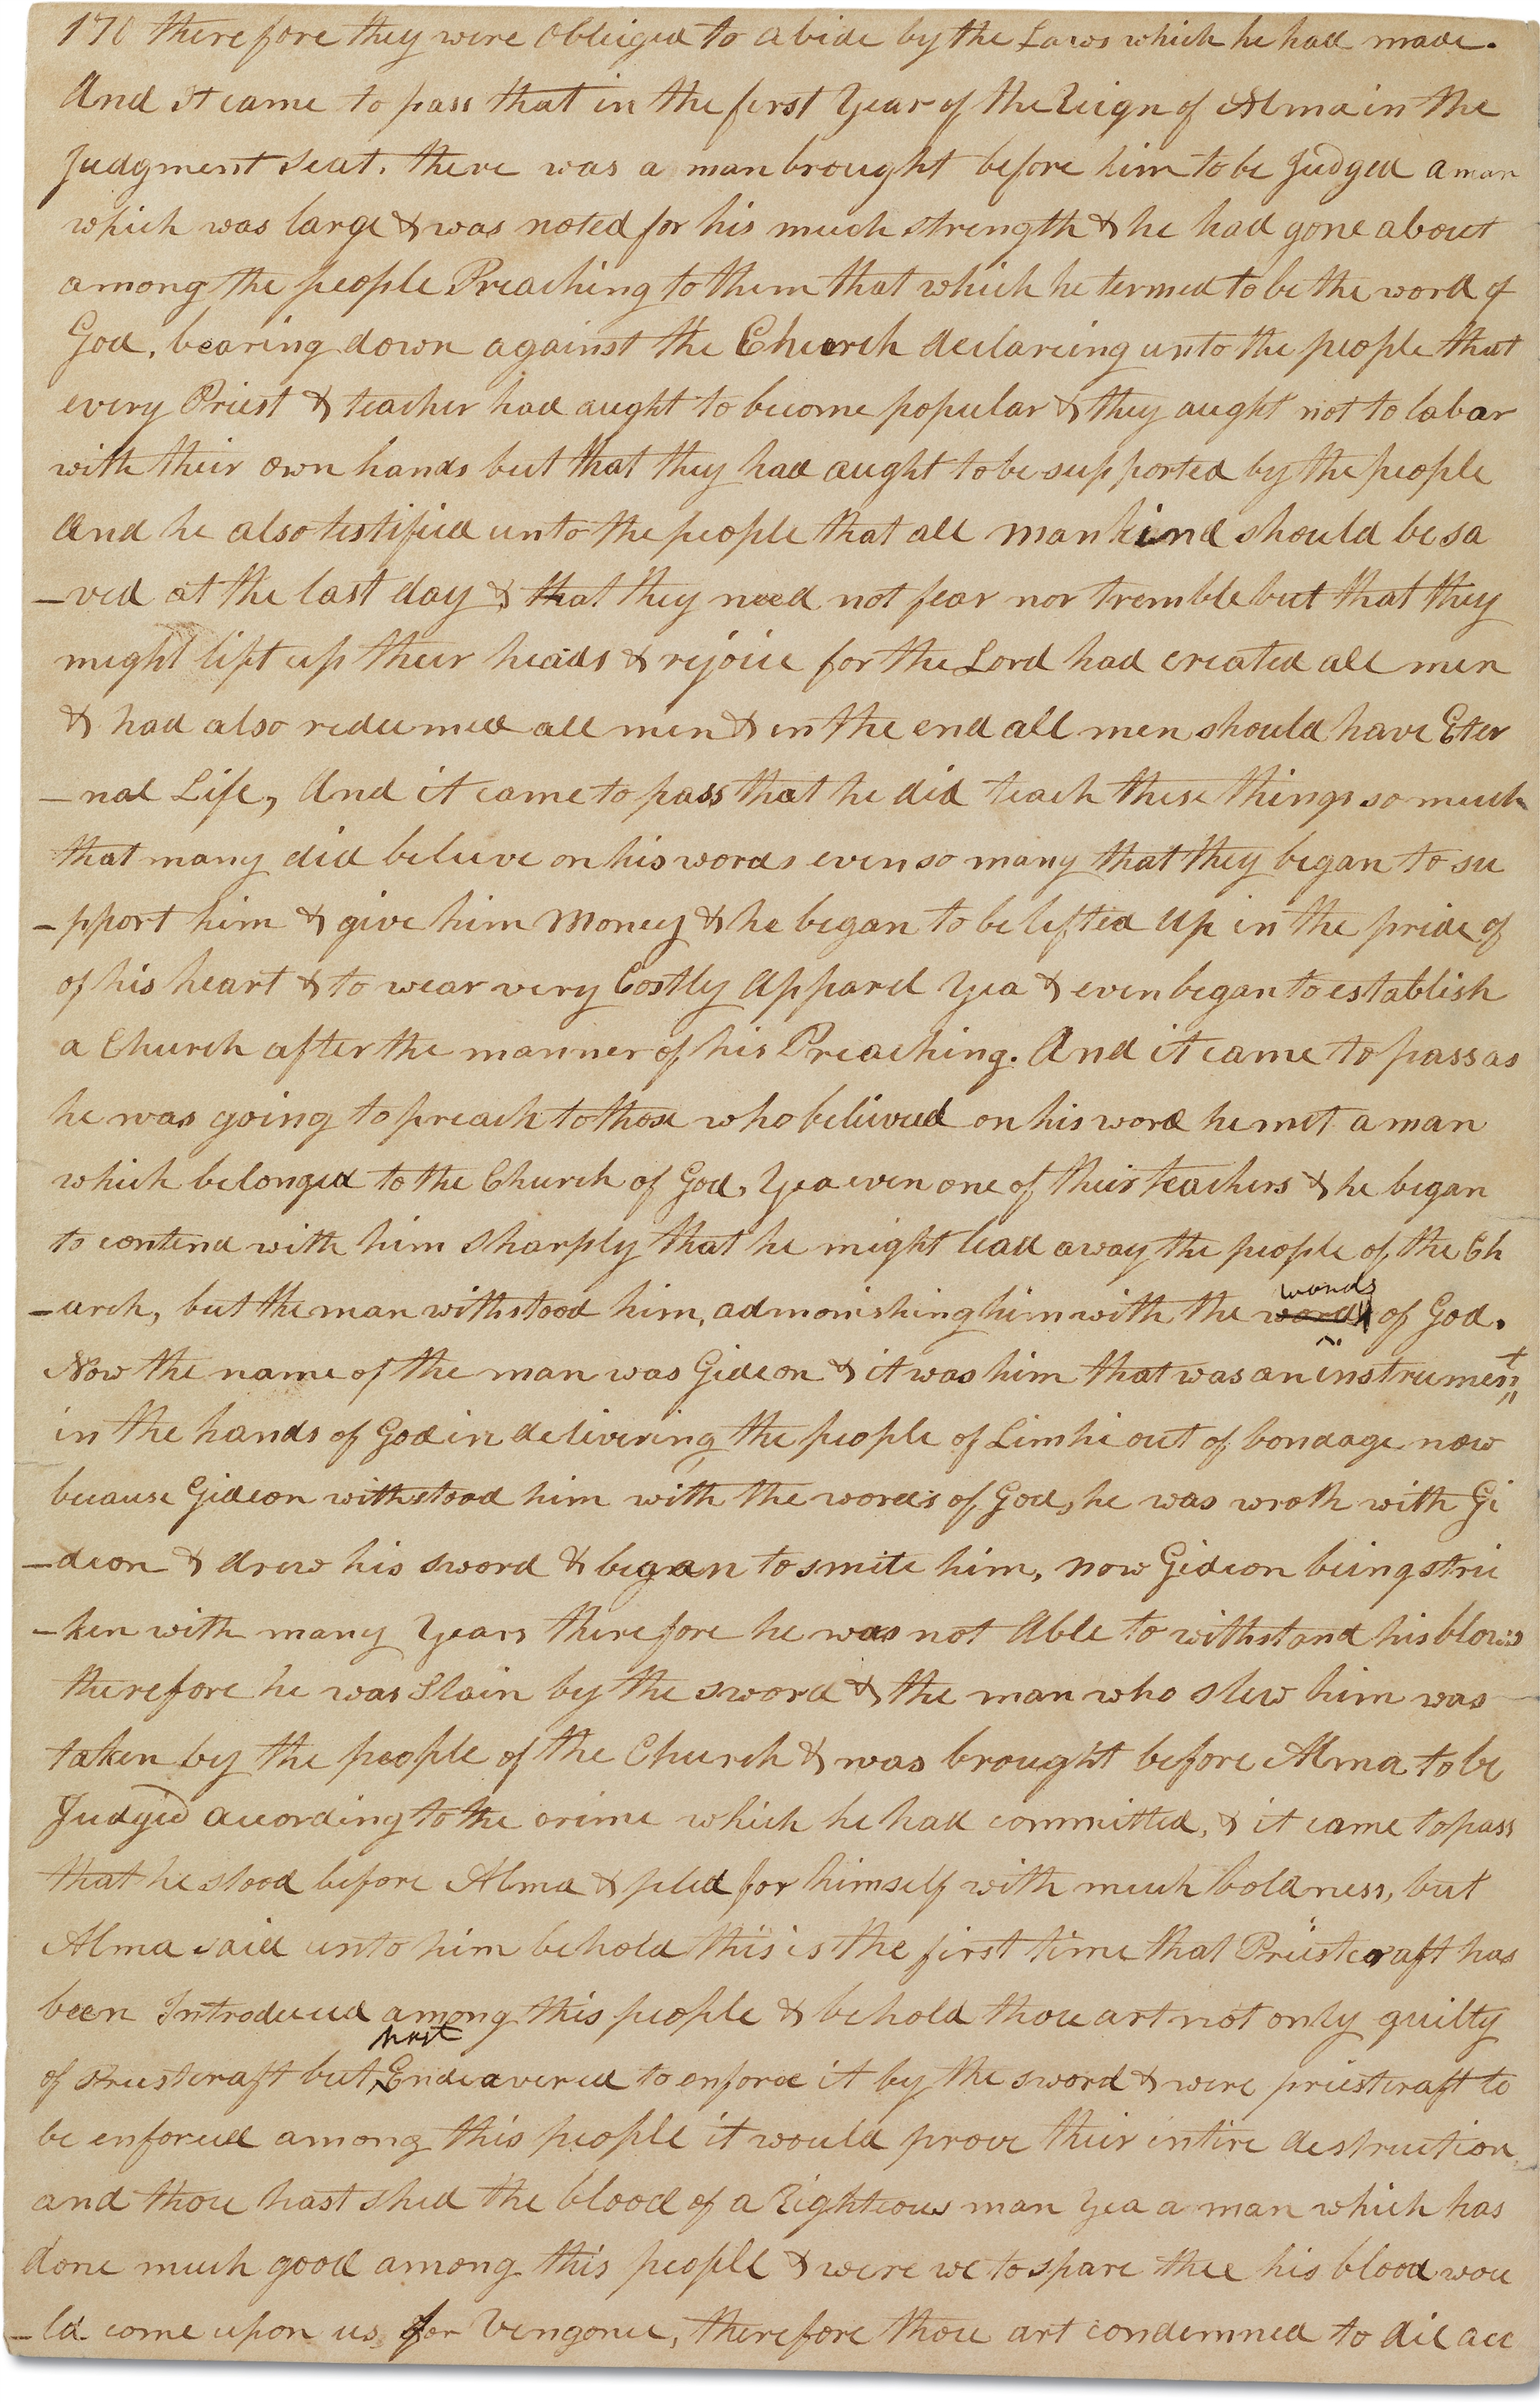 170 therefore they were obleiged to abide by the Laws which he had made.
And it came to pass that in the first Year of the Reign of Alma in the
Judgment Seat, there was a man brought before him to be Judged a man
which was large & was noted for his much strength & he had gone about
among the people Preaching to them that which he termed to be the word of
God, bearing down against the Church declareing unto the people that
every Priest & teacher had aught to become popular & they aught not to labar
with their own hands but that they had aught to be supported by the people
And he also testified unto the people that all mankind should be sa
-ved at the last day & that they need not fear nor tremble but that they
might lift up their heads & rejoice for the Lord had created all men
& had also redeemed all men & in the end all men should have Eter
-nal Life, And it came to pass that he did teach these things so much
that many did believe on his words even so many that they began to su
-pport him & give him Money & he began to be lifted up in the pride of
of his heart & to wear very Costly Apparel Yea & even began to establish
a Church after the manner of his Preaching. And it came to pass as
he was going to preach to those who believed on his word he met a man
which belonged to the Church of God, Yea even one of their teachers & he began
to contend with him sharply that he might lead away the people of the Ch
-urch, but the man withstood him, admonishing him with the words of God.
Now the name of the man was Gideon & it was him that was an instrument
in the hands of God in delivering the people of Limhi out of bondage now
because Gideon withstood him with the words of God, he was wroth with Gi
-deon & drew his sword & began to smite him, now Gideon being stric
-ken with many Years therefore he was not Able to withstand his blows
therefore he was Slain by the sword & the man who slew him was
taken by the people of the Church & was brought before Alma to be
Judged according to the crime which he had committed, & it came to pass
that he stood before Alma & pled for himself with much boldness, but
Alma said unto him behold this is the first time that Priestcraft has
been Introduced among this people & behold thou art not only guilty
of Priestcraft but hast Endeavered to enforce it by the sword & were priestcraft to
be enforced among this people it would prove their intire destruction
and thou hast shed the blood of a Righteous man Yea a man which has
done much good among this people & were we to spare thee his blood wou
-ld come upon us for Vengence, therefore thou art condemned to die acc